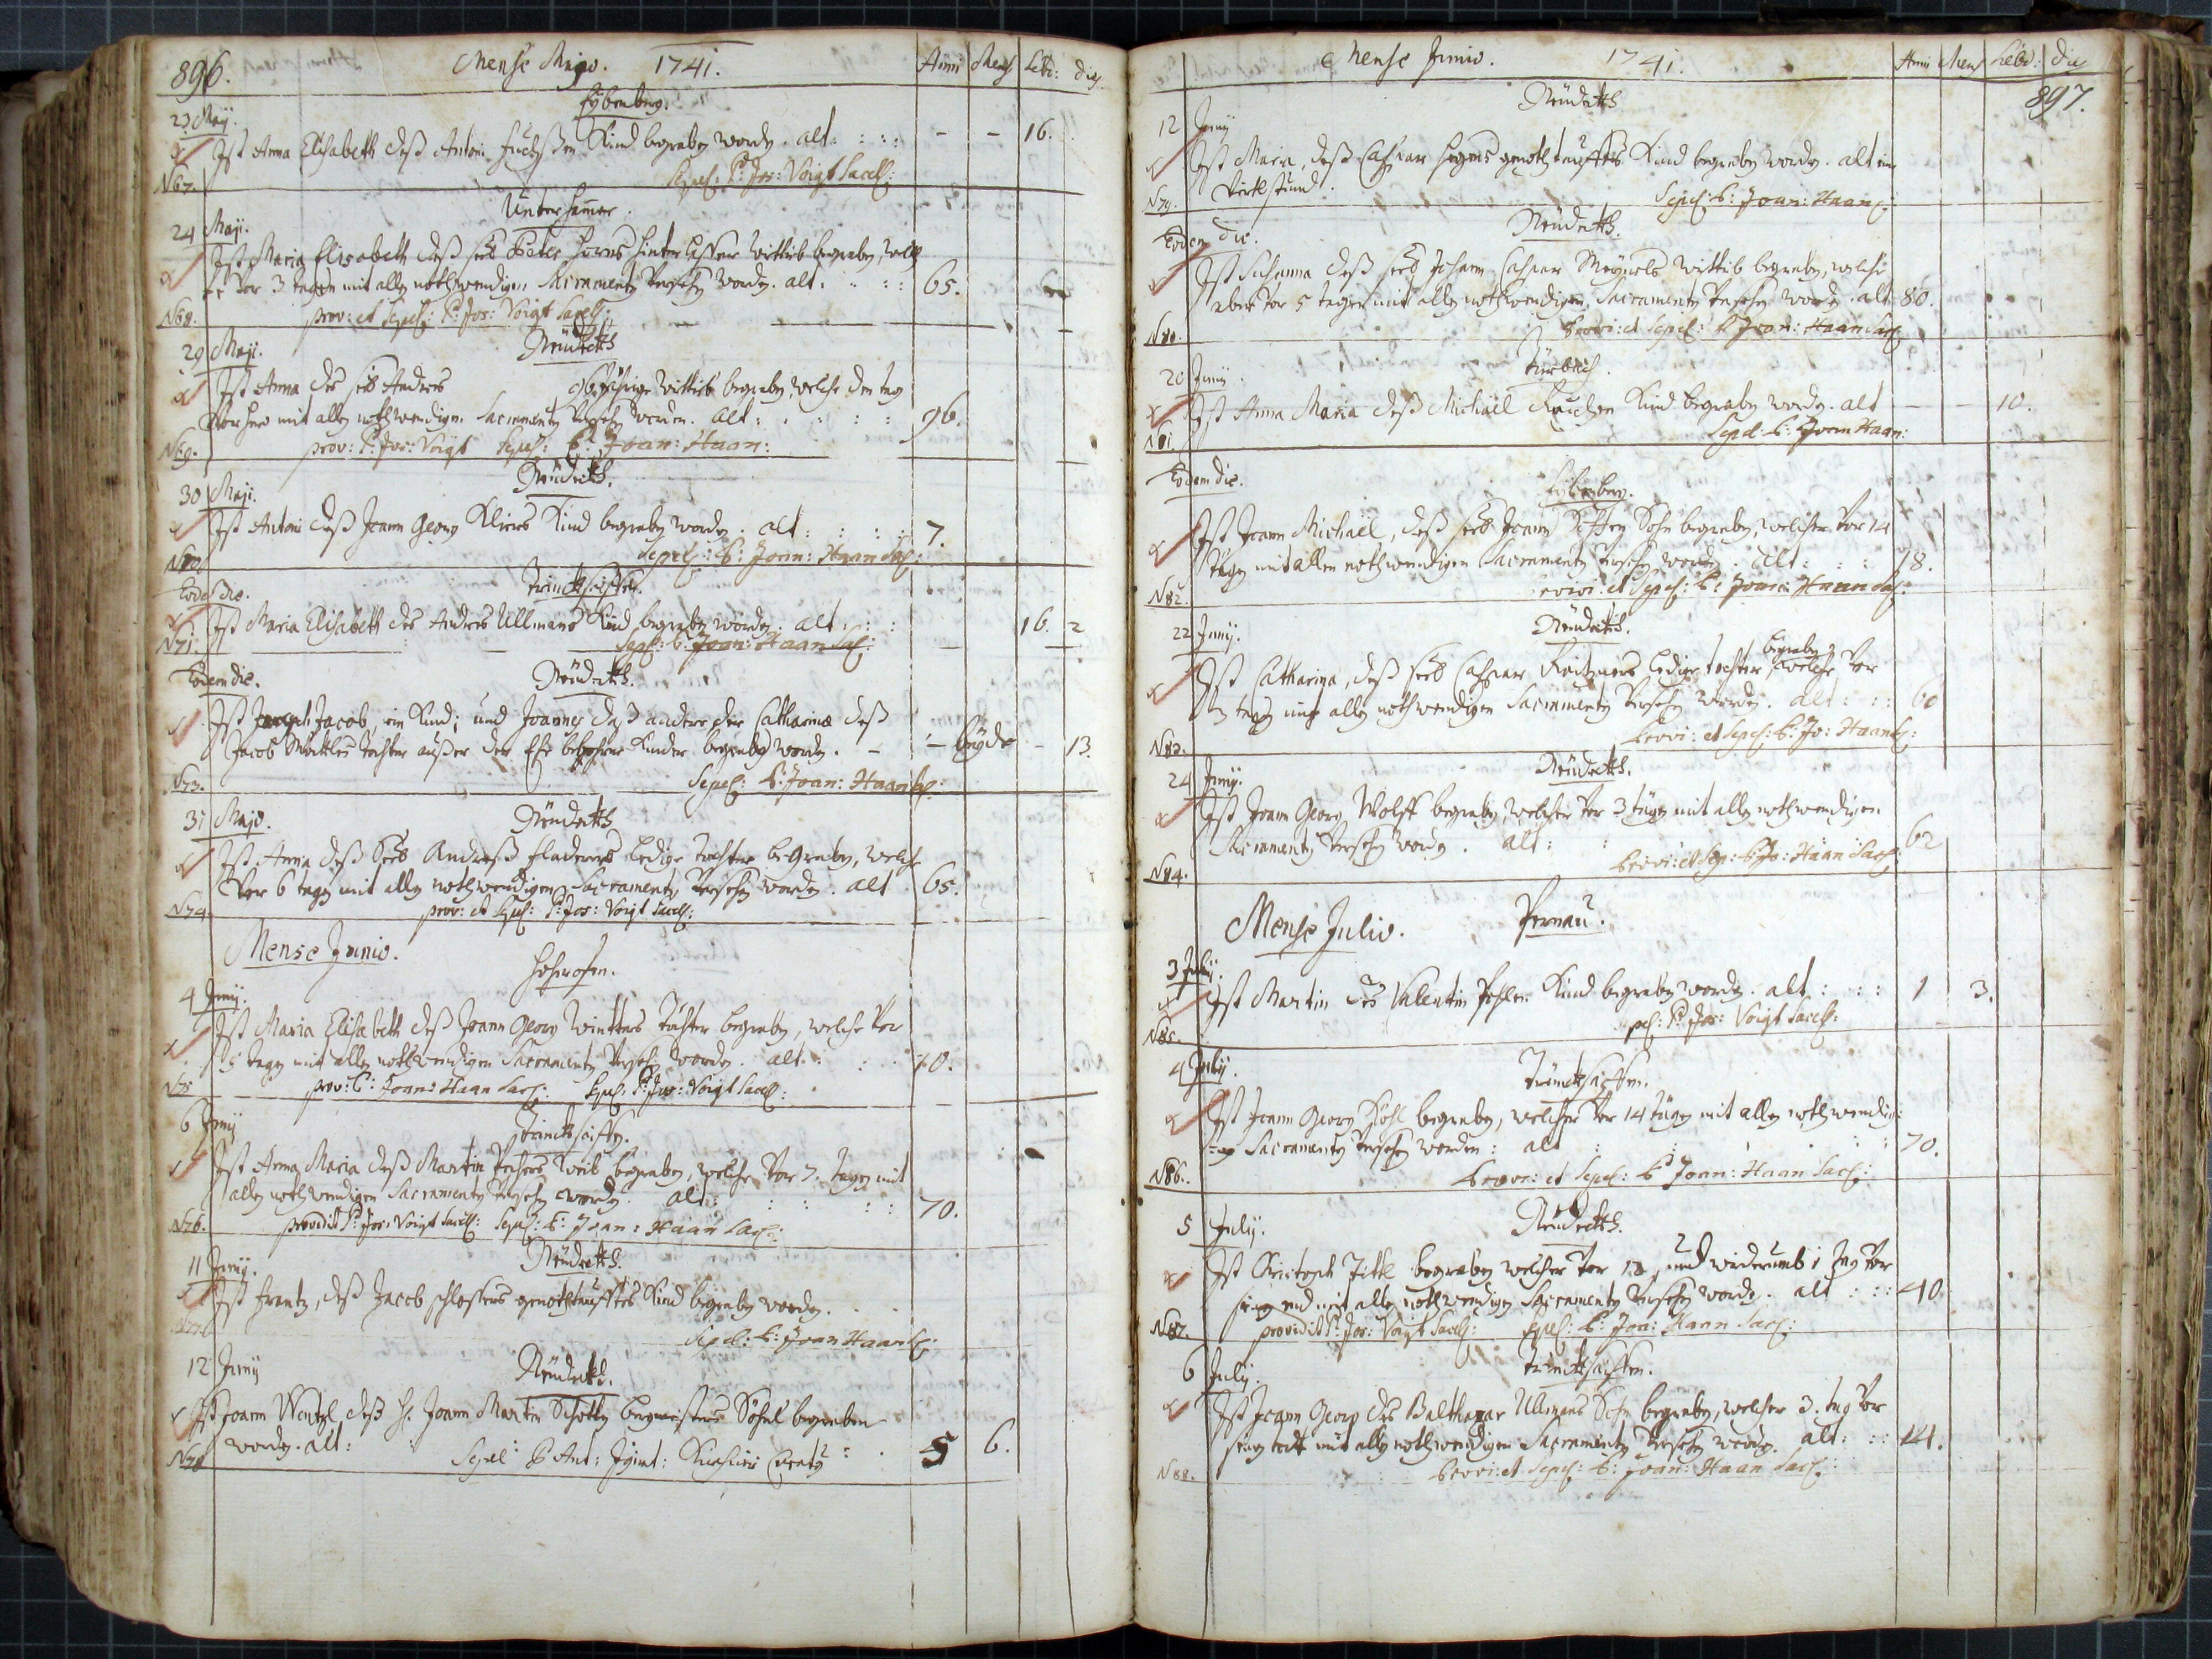 896. Mense Majo. 1741. Anni Mens Sebt: dies
Eybenberg.
23 Maij.
Ist Anna Elisabeth deß Antoni Fuchsßen Kind begraben worden. alt : : : – – 16.
N 67. Sepel: P: Jos: Voigt Sacell:
Unterhamer.
24 Maji.
Ist Maria Elisabeth deß seel Peter hinterlassene Wittib begraben, welch
e vor 3 tagen mit allen nothwendigen Sacramenten versehen worden. alt. : : 65.
N 68. prov: et Sepel: P: Jos: Voigt Sacell:
29 Maji. Neudeckh
Ist Anna des seel Andres 96 Jährige Wittib begraben, welche den tag
vorhero mit allen nothwendigen Sacramenten versehen worden. alt : : : 96.
N 69. prov: P: Jos: Voigt Sepel: P: Joan: Haan:
Neudeckh.
30 Maji.
Ist Antoni deß Joann Georg Kind begraben worden. alt : : : : 7.
N 70. Sepel: P: Joan: Haan Sac:
Eode die. Trinckseiffen.
Ist Maria Elisabeth des Andres Ullmans Kind begraben worden. alt : : : 16. 2
N 71. Sepel: P: Joan: Haan Sac:
Eodem die. Neudeckh.
Ist Jacob, ein Kind; und Joannes daß andere der Catharina deß
Jacob tochter außer der Ehe gebohrne Kinder begraben worden. – – beyde – 13.
N 73. Sepel: P: Joan: Haan Sac:
31 Majo. Neudeckh
Ist Anna deß Seel Andreß Fladerers Ledige tochter begraben, welche
vor 6 tagen mit allen nothwendigen Sacramenten versehen worden. alt 65.
N 74. prov: et Sepel: P: Jos: Voigt Sacell:
Mense Junio. Hohofen.
4 Junij.
Ist Maria Elisabeth deß Joann Georg Winters tochter begraben, welche vor
tagen mit allen nothwendigen Sacramenten versehen worden. alt. : : 10.
N 75 prov: P: Joan: Haan Sac: Sepel: P: Jos: Voigt Sacell:
6 Junij Trinckseiffen.
Ist Anna Maria deß Martin Weib begraben, welche vor 7. tagen mit
allen nothwendigen Sacramenten versehen worden. alt : : : : 70.
N 76. providit P: Jos: Voigt Sacell: Sepel: P: Joan: Haan Sac:
11 Junij. Neudeckh.
Ist Frantz, deß Jacob Schlossers genothtaufftes Kind begraben worden.
Sepel: P: Joan Haan
12 Junij Neudeckh.
Ist Joann Wentzl deß H. Joann Martin Bergmeisters Söhnl begraben
worden. alt : 5 6.
N 78 Sepel P Ant: Ignat:
Mense Junio. 1741. Anni Mens Hebd: die
897.
Neudeckh
12 Junij
Ist Maria, deß Caspar genothtaufftes Kind begraben worden. alt ein
Viertl stund.
N 79. Sepel: P: Joan: Haan
Eodem die. Neudeckh.
Ist Susanna deß seel Johann Caspar Wittib begraben, welche
aber vor 5 tagen mit allen nothwendigen Sacramenten versehen worden. alt 80.
N 80. Provi: et Sepel: P Joan: Haan Sac
20 Junij
Ist Anna Maria deß Michael Kind begraben worden. alt – – 10.
N 81. Sepel: P: Joan Haan:
Eodem die. Eybenberg.
Ist Joann Michael, deß seel Joann Sohn begraben, welcher vor 14
tagen mit allen nothwendigen Sacramenten versehen worden. alt : : : 78.
N 82. Provi: et Sepel: P: Joan: Haan Sac:
22 Junij. Neudeckh.
begraben
Ist Catharina, deß seel Caspar ledige tochter, welche vor
3 tagen mit allen nothwendigen Sacramenten versehen worden. alt : : : 60
N 83. Provi: et Sepel: P: Jo: Haan
24 Junij. Neudeckh.
Ist Joann Georg Wolff begraben, welcher vor 3 tagen mit allen nothwendigen
Sacramenten versehen worden. alt : 62
N 84. Provi: et Sep: P: Jo: Haan Sac:
Mense Julio. Pernau.
3 Julij.
Ist Martin des Valentin Kind begraben worden. alt : : : 1 3.
N 85. Sepel: P: Jos: Voigt Sacell:
4 Julij. Trinckseiffen.
Ist Joann Georg begraben, welcher vor 14 tagen mit allen nothwendig:
Sacramenten versehen worden : alt : : : 70.
N 86. Provi: et Sepel: P Joan: Haan Sac:
5 Julij. Neudeckh.
Ist Christoph begraben welcher vor 12 und widerumb 1 tag vor
seinen end mit allen nothwendigen Sacramenten versehen worden. alt : : : 40.
N 87. providit P: Jos: Voigt Sacell: Sepel: P: Joa: Haan Sac:
6 Julij. Trinckseiffen.
Ist Joann Georg des Balthasar Ullmans Sohn begraben, welcher 3. tag vor
seinen todt mit allen nothwendigen Sacramenten versehen worden. alt : : : 14.
N 88. Provi: et Sepel: P: Joan: Haan Sac: